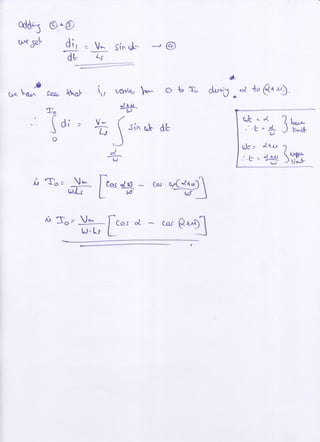 adding ① + ③
we get di₁/dt = Vm/Ls sin ωt → ④
we have seen that i₁ varies from 0 to I₀ during α to (α+μ).
∴ ∫₀^I₀ di = Vm/Ls ∫_{α/ω}^{(α+μ)/ω} sin ωt dt
ωt = α
∴ t = α/ω } lower limit
ωt = α+μ
∴ t = (α+μ)/ω } upper limit
is I₀ = Vm/ωLs [cos αω/ω − cos ω(α+μ)/ω]
is I₀ = Vm/ω·Ls [cos α − cos (α+μ)]